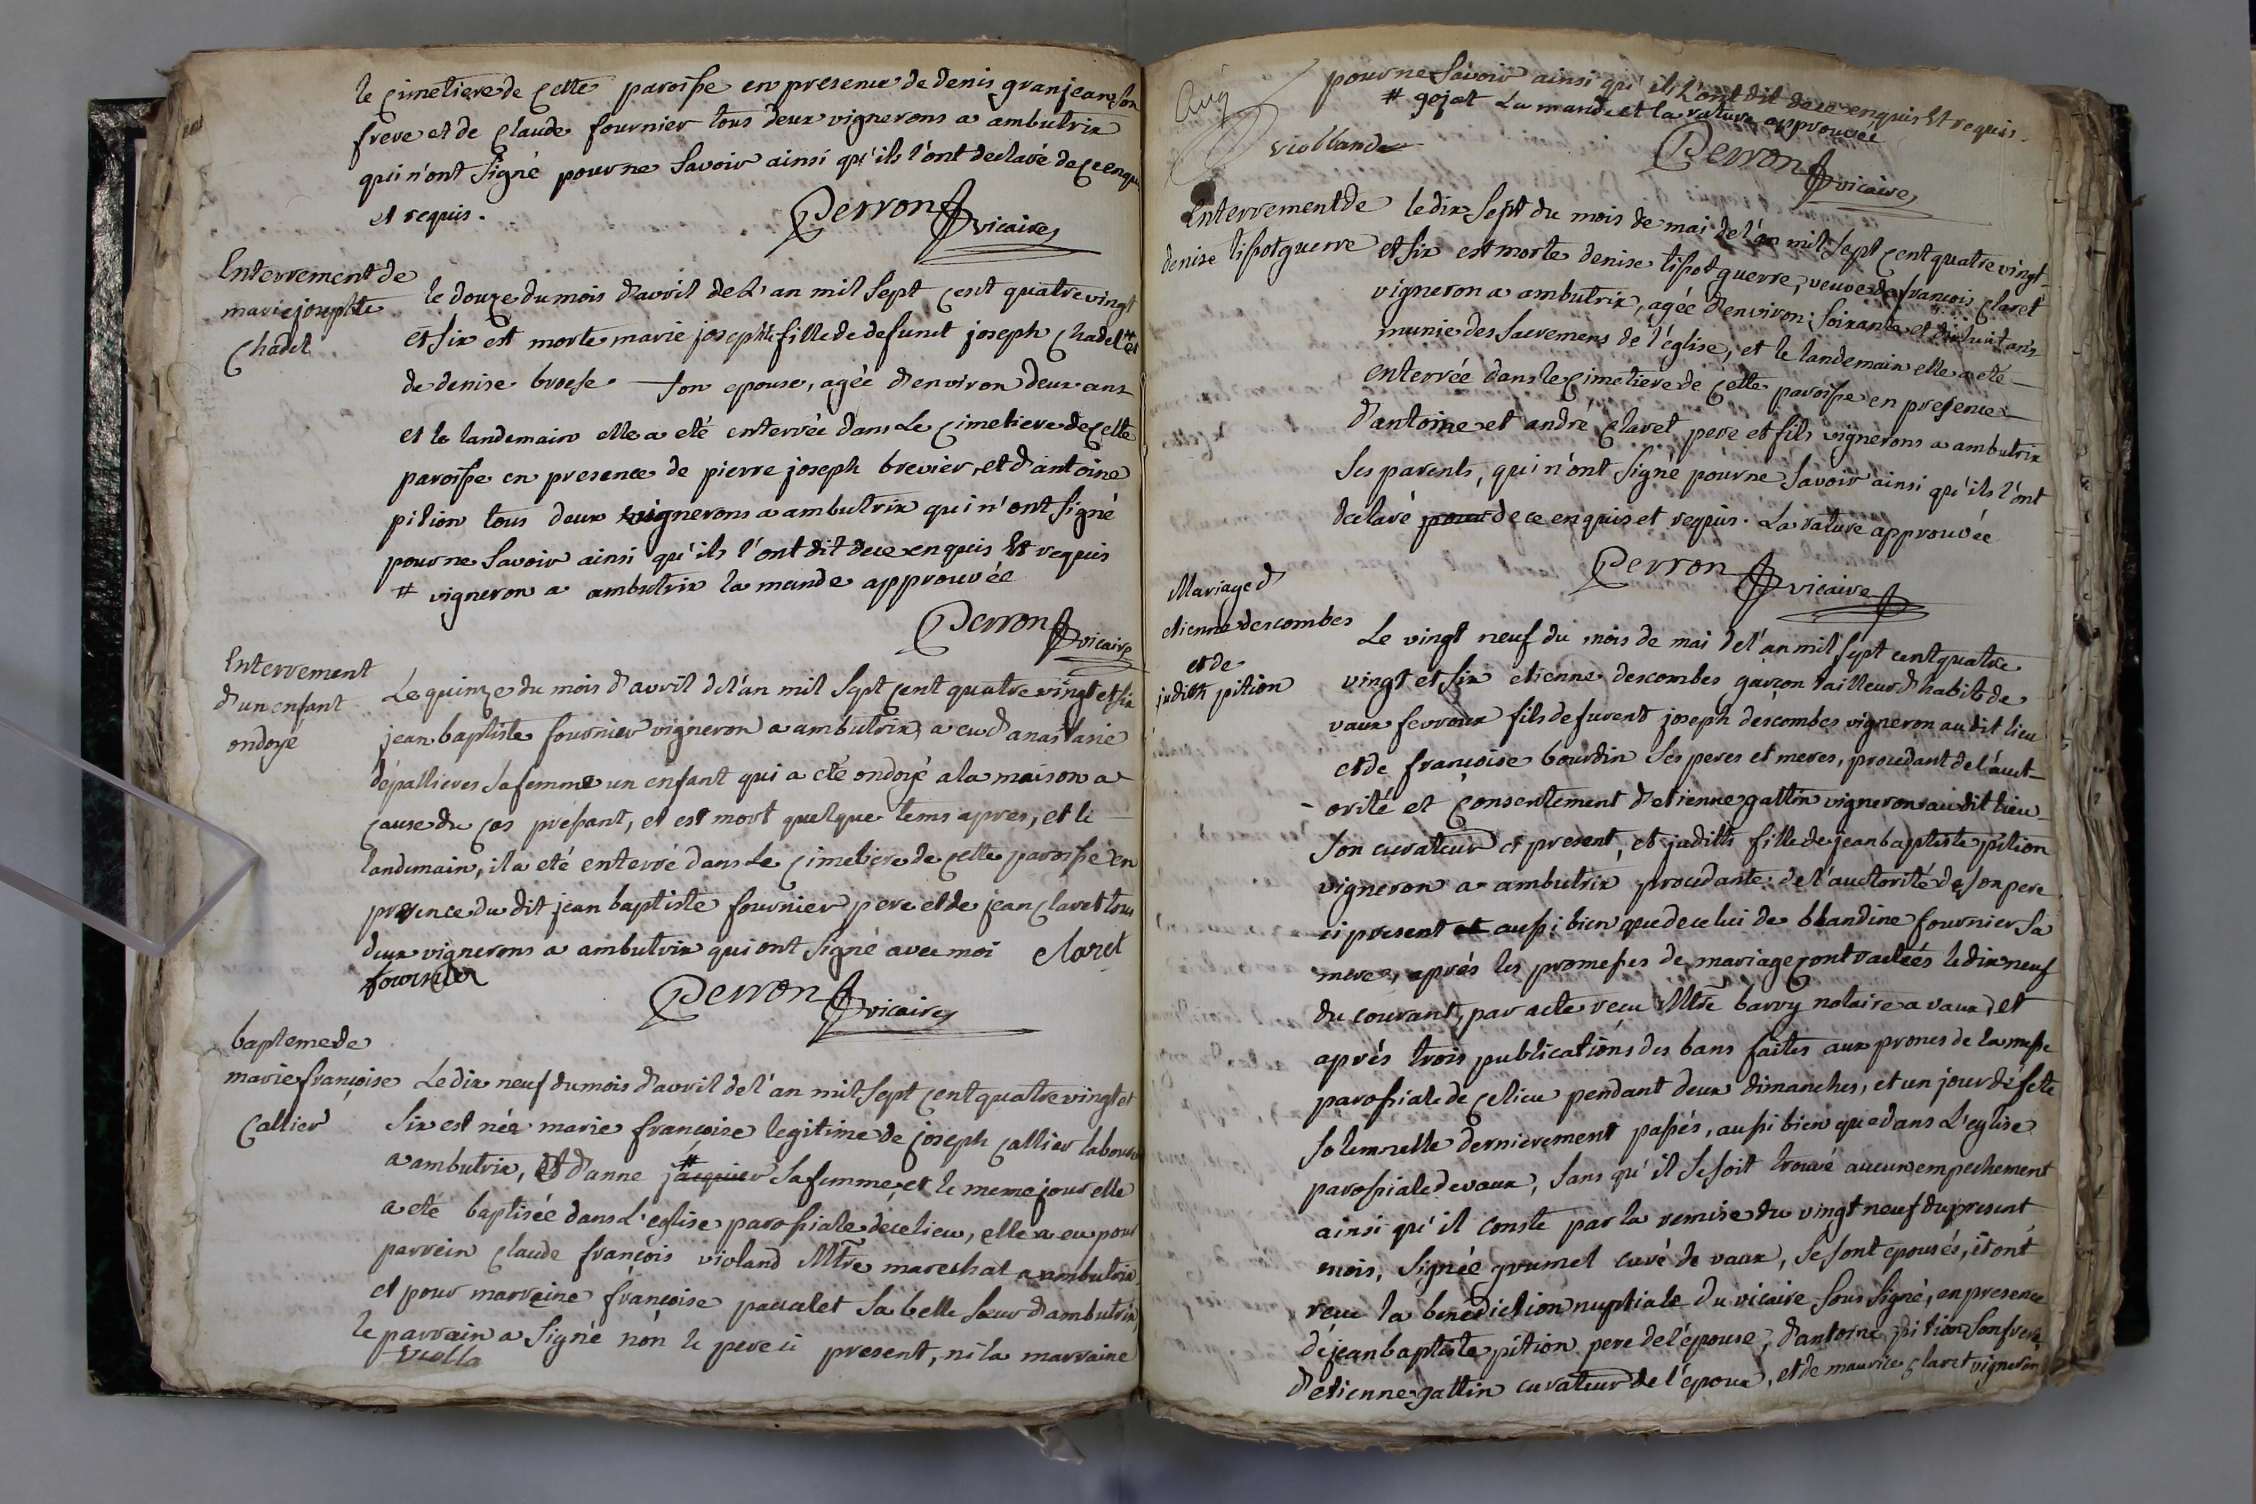 le cimetiere de cette paroisse en presence de denis granjean son
frere et de claude fournier tous deux vignerons a ambutrix
qui n'ont signé pour ne savoir ainsi qu'ils l'ont declaré de ce enquis
et requis.
Perron vicaire
Enterrement de
marie josephte
chadel
le douze du mois d'avril de l'an mil sept cent quatre vingt
et six est morte marie josephte fille de defunct joseph chadel # et
de denise brosse son epouse, agée d'environ deux ans
et le landemain elle a eté enterrée dans le cimetiere de cette
paroisse en presence de pierre joseph brevier, et d'antoine
pition tous deux vignerons a ambutrix qui n'ont signé
pour ne savoir ainsi qu'ils l'ont dit de ce enquis et requis
# vigneron a ambutrix la mande approuvée
Perron vicaire
Enterrement
d'un enfant
ondoyé
Le quinze du mois d'avril de l'an mil sept cent quatre vingt et six
jean baptiste fournier vigneron a ambutrix, a eu d'anastasie
dépallieres sa femme un enfant qui a eté ondoyé a la maison a
cause du cas pressant, et est mort quelque tems apres, et le
landemain, il a eté enterré dans le cimetiere de cette paroisse en
presence du dit jean baptiste fournier pere et de jean claret tous
deux vignerons a ambutrix qui ont signé avec moi claret
fournier
Perron vicaire
baptemede
marie françoise
Callier
Le dix neuf du mois d'avril de l'an mil sept cent quatre vingt et
six est née marie francoise legitime de joseph callier laboureur
a ambutrix, et d'anne jacquier # sa femme, et le meme jour elle
a eté baptisée dans l'eglise parossiale de ce lieu, elle a eu pour
parrein claude françois violand Mtre mareshal a ambutrix,
et pour marreine françoise paucalet sa belle sœur d'ambutrix,
le parrain a signé non le pere ci present, ni la marraine
Viollo
Aug
violland
pour ne savoir ainsi qu'ils l'ont dit de ce enquis et requis.
# gojat La mande et la rature approuvée
Perron vicaire
Enterrement de
denise tissot guerre
le dix sept du mois de mai de l'an mil sept cent quatre vingt
et six est morte denise tissot guerre, veuve de françois claret
vigneron a ambutrix, agée d'environ soixante et dix huit ans
munie des sacremens de l'église, et le landemain elle a eté
enterrée dans le cimetiere de cette paroisse en presence
d'antoine et andré claret pere et fils vignerons a ambutrix
ses parents, qui n'ont signé pour ne savoir ainsi qu'ils l'ont
declaré pour de ce enquis et requis. La rature approuvée
Perron vicaire
Mariage d'
etienne descombes
et de
judith pition
Le vingt neuf du mois de mai de l'an mil sept cent quatre
vingt et six etienne descombes garçon tailleur d'habits de
vaux fevroux fils de furent joseph descombes vigneron au dit lieu
et de françoise bourdin ses peres et meres, procedant de l'auct-
- orité et consentement d'etienne gattin vigneron au dit lieu
son curateur ci present, et judith fille de jean baptiste pition
vigneron a ambutrix procedante de l'auctorité de son pere
ci present et aussi bien que de celui de blandine fournier sa
mere, aprés les promesses de mariage contractées le dix neuf
du courant, par acte recu Mtre barry notaire a vaux, et
aprés trois publications des bans faites aux prones de la messe
parossiale de ce lieu pendant deux dimanches, et un jour de fete
solemnelle dernierement passés, aussi bien que dans l'eglise
parossiale de vaux, sans qu'il se soit trouvé aucun empechement
ainsi qu'il conste par la remise du vingt neuf du present
mois, signée grumet curé de vaux, se sont epousés, et ont
recu la benediction nuptiale du vicaire sous signé, en presence
de jean baptiste pition pere de l'épouse, d'antoine pition son frere
d'etienne gattin curateur de l'epoux, et de maurice claret vigneron